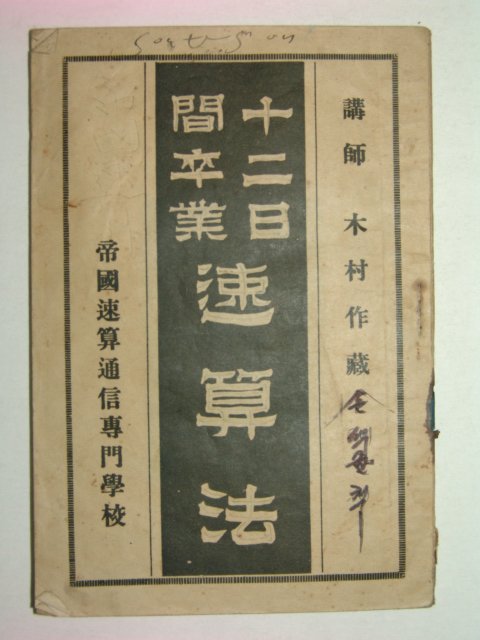 講師 木村作藏
十二日
間卒業
速算法
帝國速算通信專門學校